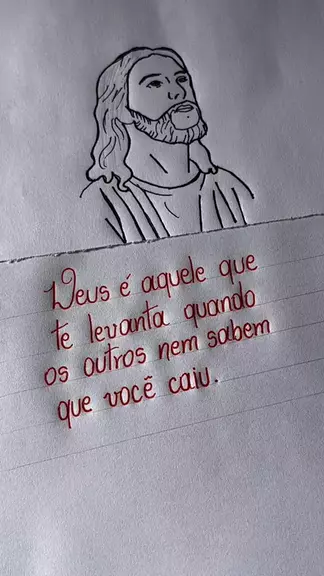 Deus é aquele que
te levanta quando
os outros nem sabem
que você caiu.